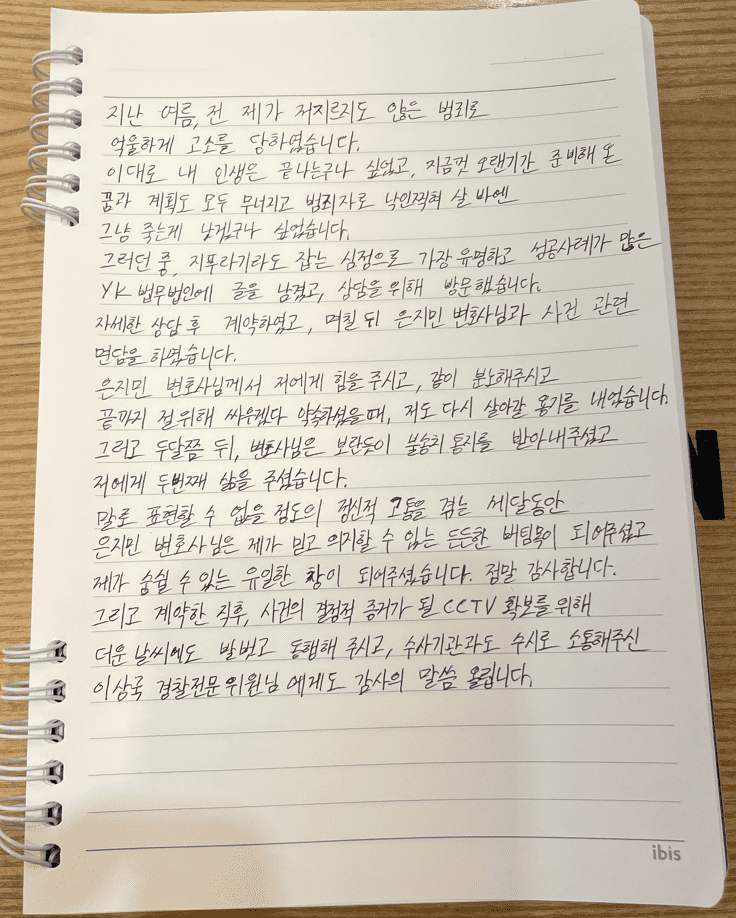 지난 여름, 전 제가 저지르지도 않은 범죄로
억울하게 고소를 당하였습니다.
이대로 내 인생은 끝나는구나 싶었고, 지금껏 오랜기간 준비해 온
꿈과 계획도 모두 무너지고 범죄자로 낙인찍혀 살 바엔
그냥 죽는게 낫겠구나 싶었습니다.
그러던 중, 지푸라기라도 잡는 심정으로 가장 유명하고 성공사례가 많은
YK 법무법인에 글을 남겼고, 상담을 위해 방문했습니다.
자세한 상담 후 계약하였고, 며칠 뒤 은지민 변호사님과 사건 관련
면담을 하였습니다.
은지민 변호사님께서 저에게 힘을 주시고, 같이 분노해주시고
끝까지 절 위해 싸우겠다 약속하셨을때, 저도 다시 살아갈 용기를 내었습니다.
그러고 두달쯤 뒤, 변호사님은 보란듯이 불송치 통지를 받아내주셨고
저에게 두번째 삶을 주셨습니다.
말로 표현할 수 없을 정도의 정신적 고통을 겪는 세달동안
은지민 변호사님은 제가 믿고 의지할 수 있는 든든한 버팀목이 되어주셨고
제가 숨쉴 수 있는 유일한 창이 되어주셨습니다. 정말 감사합니다.
그리고 계약한 직후, 사건의 결정적 증거가 될 CCTV 확보를 위해
더운 날씨에도 발벗고 동행해 주시고, 수사기관과도 수시로 소통해주신
이상국 경찰전문위원님에게도 감사의 말씀 올립니다.
ibis